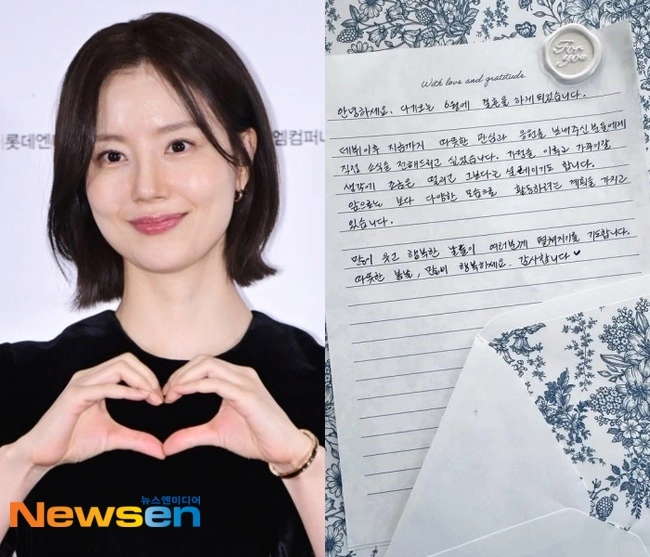 롯데엔
엠컴퍼니
뉴스엔미디어
Newsen
For you
With love and gratitude.
안녕하세요. 다가오는 6월에 결혼을 하게 되었습니다.
데뷔 이후 지금까지 따뜻한 관심과 응원을 보내주신 분들에게
직접 소식을 전해드리고 싶었습니다. 가정을 이루고 가꾸어갈
생각에 조금은 떨리고 그보다는 설레이기도 합니다.
앞으로는 보다 다양한 모습으로 활동하려는 계획을 가지고
있습니다.
많이 웃고 행복한 날들이 여러분께 펼쳐지기를 기도합니다.
따뜻한 봄날, 많이 행복하세요. 감사합니다 ♥